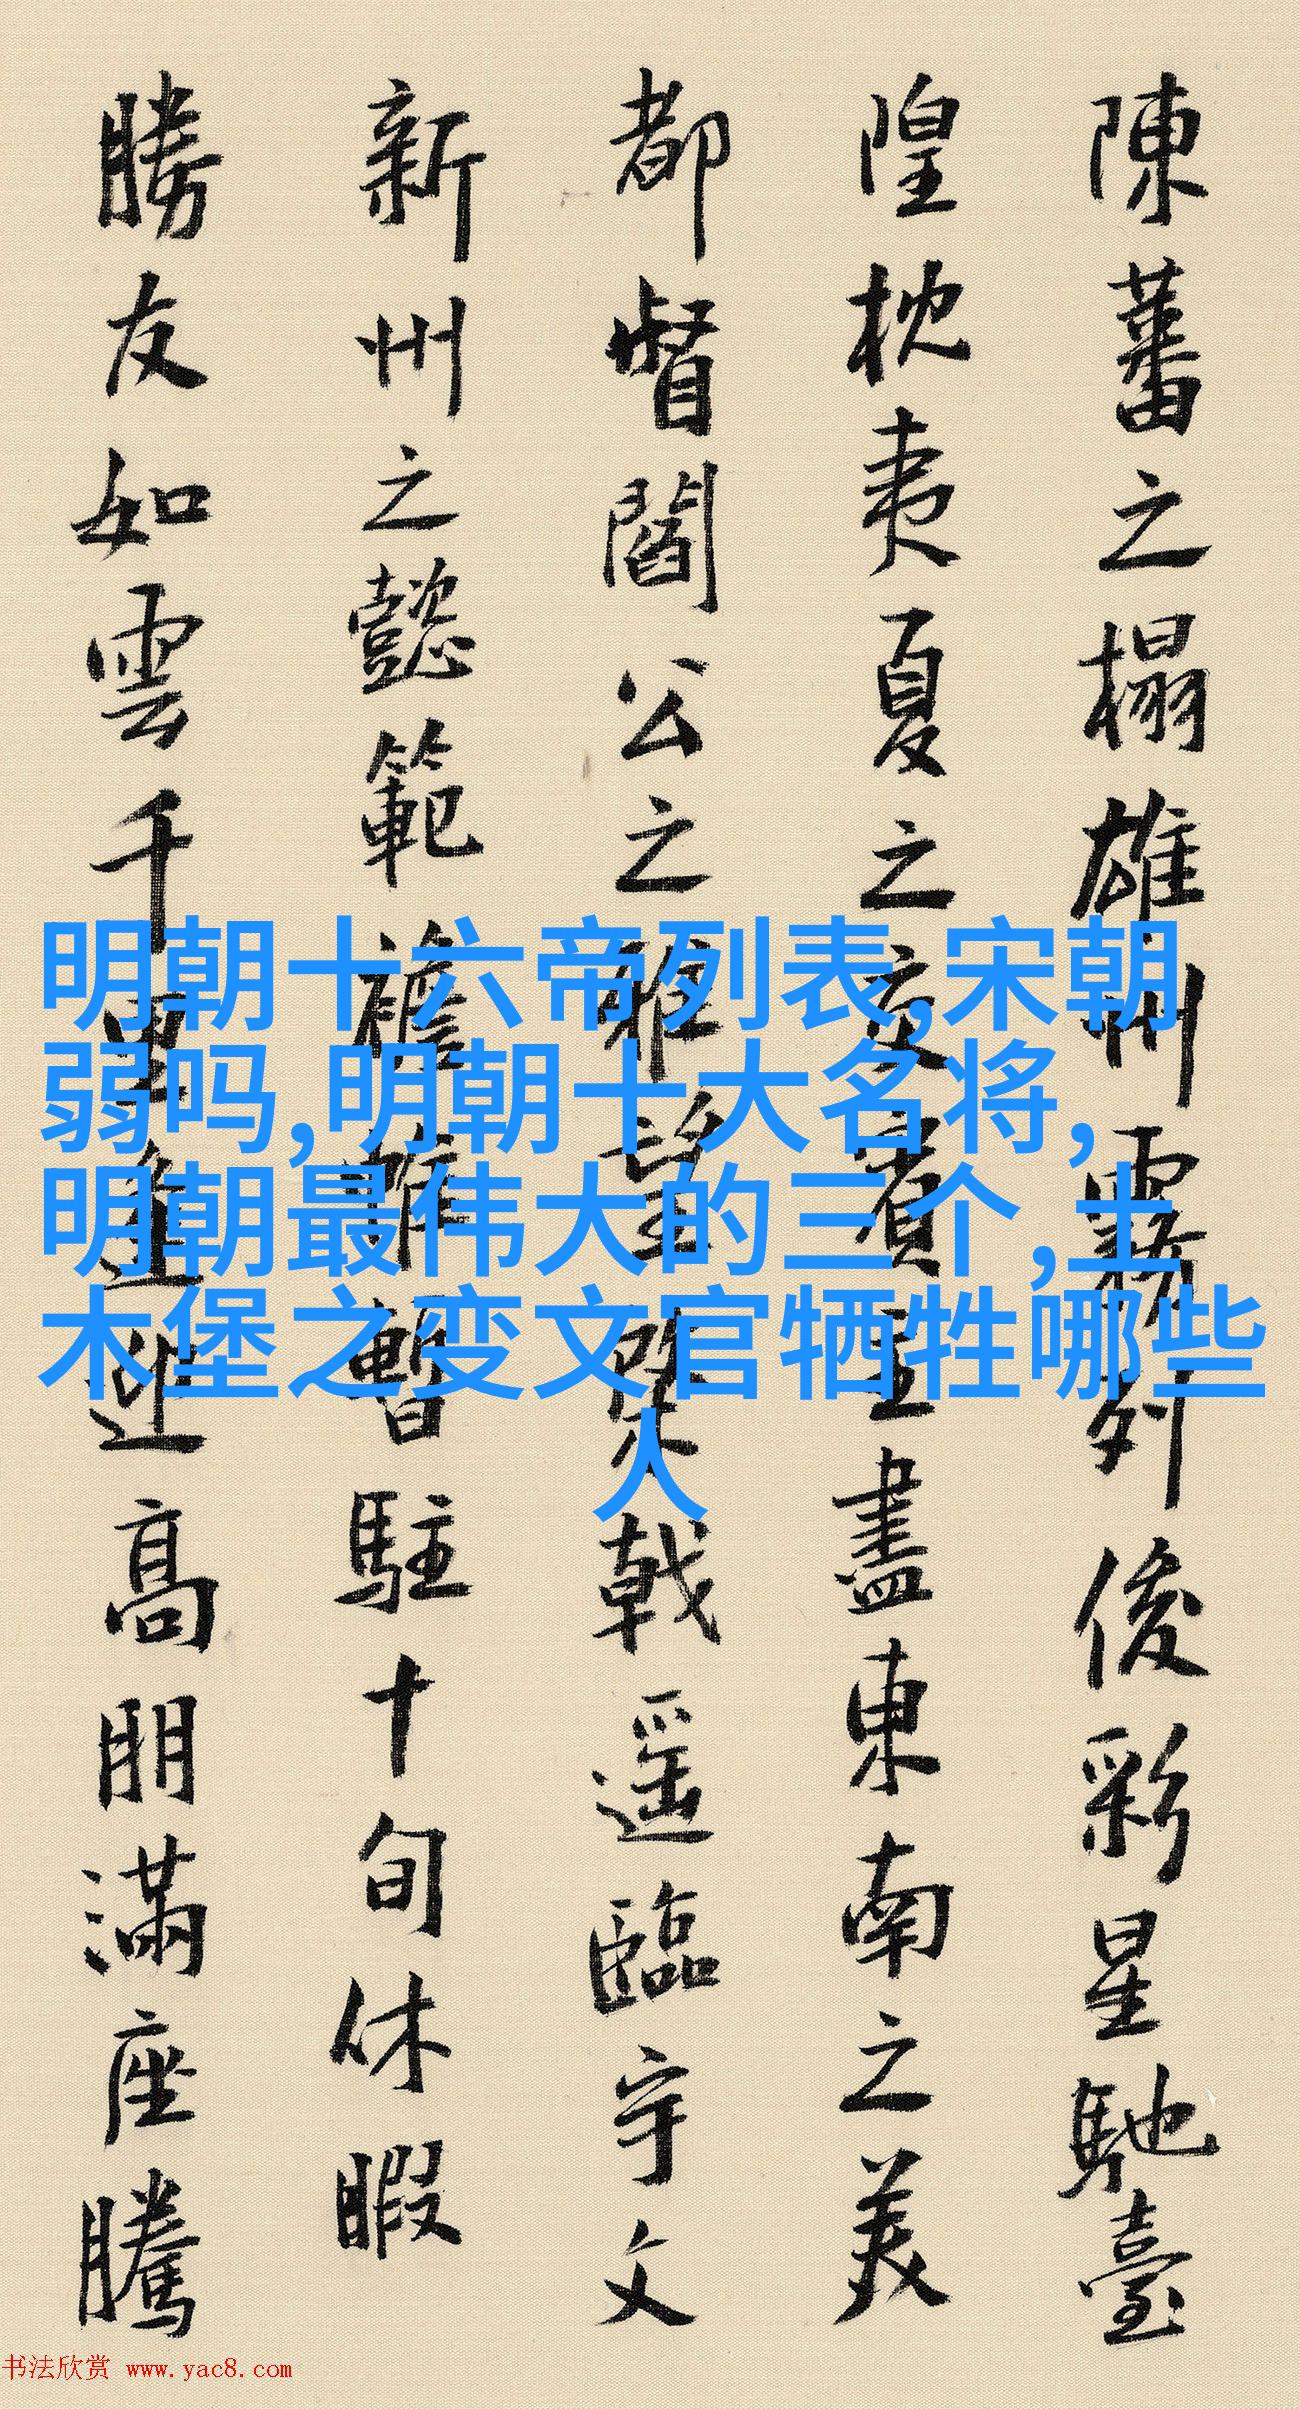 陳蕃之榻雄州霧列俊彩星馳臺
隍枕夷夏之交賓主盡東南之美
都督閻公之雅望棨戟遥臨宇文
新州之懿範襜帷暫駐十旬休暇
勝友如雲千里逢迎高朋滿座騰
明朝十六帝列表,宋朝
弱吗,明朝十大名将,
明朝最伟大的三个,土
木堡之变文官牺牲哪些
人
书法欣赏 www.yac8.com